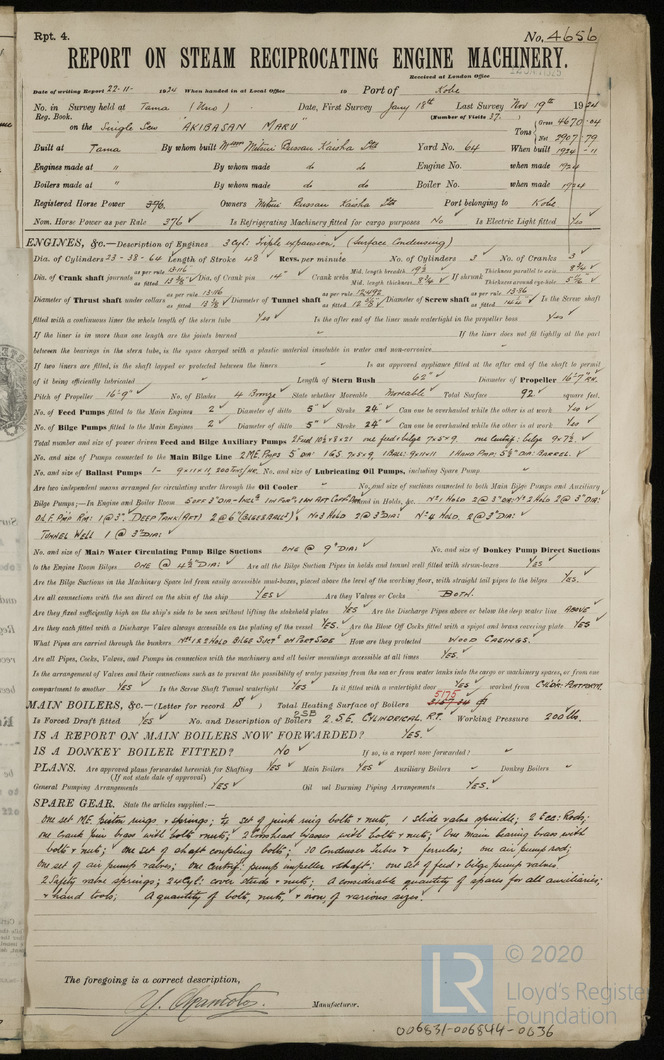 Rpt. 4. No. 4656
REPORT ON STEAM RECIPROCATING ENGINE MACHINERY.
Received at London Office
Date of writing Report 22-11- 1924 When handed in at Local Office 19 Port of Kobe
No. in Survey held at Tama (Uno) Date, First Survey Jany 18th Last Survey Nov 19th 1924
Reg. Book. (Number of Visits 37.)
on the Single Scw "AKIBASAN MARU" Tons Gross 4670.04 Net 2907.79
Built at Tama By whom built Messrs Mitsui Bussan Kaisha Ltd Yard No. 64 When built 1924-11
Engines made at " By whom made do do Engine No. when made 1924
Boilers made at " By whom made do do Boiler No. when made 1924
Registered Horse Power 376. Owners Mitsui Bussan Kaisha Ltd Port belonging to Kobe
Nom. Horse Power as per Rule 376 Is Refrigerating Machinery fitted for cargo purposes No Is Electric Light fitted Yes
ENGINES, &c.—Description of Engines 3 Cyl: Triple expansion. (Surface Condensing)
Dia. of Cylinders 23-38-64 Length of Stroke 48 Revs. per minute No. of Cylinders 3 No. of Cranks 3
Dia. of Crank shaft journals as per rule 13.116 as fitted Dia. of Crank pin 14" Crank webs Mid. length breadth Mid. length thickness 8 3/4 If shrunk Thickness parallel to axis 8 3/4 Thickness around eye-hole
Diameter of Thrust shaft under collars as per rule 13.116 as fitted Diameter of Tunnel shaft as per rule 12.492 as fitted Diameter of Screw shaft as per rule as fitted Is the Screw shaft
fitted with a continuous liner the whole length of the stern tube Yes Is the after end of the liner made watertight in the propeller boss Yes
If the liner is in more than one length are the joints burned " If the liner does not fit tightly at the part
between the bearings in the stern tube, is the space charged with a plastic material insoluble in water and non-corrosive "
If two liners are fitted, is the shaft lapped or protected between the liners " Is an approved appliance fitted at the after end of the shaft to permit
of it being efficiently lubricated " Length of Stern Bush 62" Diameter of Propeller 16'-7" R.H.
Pitch of Propeller 16'-9" No. of Blades 4 Bronze State whether Moveable Moveable Total Surface 92 square feet.
No. of Feed Pumps fitted to the Main Engines 2 Diameter of ditto 5" Stroke 24" Can one be overhauled while the other is at work Yes
No. of Bilge Pumps fitted to the Main Engines 2 Diameter of ditto 5" Stroke 24" Can one be overhauled while the other is at work Yes
Total number and size of power driven Feed and Bilge Auxiliary Pumps 2 Feed 10½ x 8 x 21 one feed & bilge 7x5x9. one Centrif: bilge 9x7½.
No. and size of Pumps connected to the Main Bilge Line 2 M.E. Pumps 5" Dia: 1 G.S. 7x5x9. 1 Ball: 9x11x11 1 Hand Pump: 5½" Dia: Barrel.
No. and size of Ballast Pumps 1- 9x11x11, 200 Tons/hr. No. and size of Lubricating Oil Pumps, including Spare Pump "
Are two independent means arranged for circulating water through the Oil Cooler " No. and size of suctions connected to both Main Bilge Pumps and Auxiliary
Bilge Pumps;—In Engine and Boiler Room and in Holds, &c. No 1 Hold 2 @ 3" Dia: No 2 Hold 2 @ 3" Dia:
1 @ 3". Deep Tank (Aft) 2 @ 6" (Bilge & Ballt). No 3 Hold 2 @ 3" Dia: No 4 Hold, 2 @ 3" Dia:
Tunnel Well 1 @ 3" Dia:
No. and size of Main Water Circulating Pump Bilge Suctions One @ 9" Dia: No. and size of Donkey Pump Direct Suctions
to the Engine Room Bilges One @ 4½" Dia: Are all the Bilge Suction Pipes in holds and tunnel well fitted with strum-boxes Yes
Are the Bilge Suctions in the Machinery Space led from easily accessible mud-boxes, placed above the level of the working floor, with straight tail pipes to the bilges Yes.
Are all connections with the sea direct on the skin of the ship Yes Are they Valves or Cocks Both.
Are they fixed sufficiently high on the ship's side to be seen without lifting the stokehold plates Yes Are the Discharge Pipes above or below the deep water line Above
Are they each fitted with a Discharge Valve always accessible on the plating of the vessel Yes. Are the Blow Off Cocks fitted with a spigot and brass covering plate Yes
What Pipes are carried through the bunkers Nos 1 & 2 Hold Bilge Suct: on Port Side How are they protected Wood Casings.
Are all Pipes, Cocks, Valves, and Pumps in connection with the machinery and all boiler mountings accessible at all times Yes.
Is the arrangement of Valves and their connections such as to prevent the possibility of water passing from the sea or from water tanks into the cargo or machinery spaces, or from one
compartment to another Yes Is the Screw Shaft Tunnel watertight Yes Is it fitted with a watertight door Yes worked from
MAIN BOILERS, &c.—(Letter for record S) Total Heating Surface of Boilers 5175
Is Forced Draft fitted Yes No. and Description of Boilers 2SB 2. S.E. Cylindrical. R.T. Working Pressure 200 lbs.
IS A REPORT ON MAIN BOILERS NOW FORWARDED? Yes.
IS A DONKEY BOILER FITTED? No If so, is a report now forwarded? "
PLANS. Are approved plans forwarded herewith for Shafting Yes Main Boilers Yes Auxiliary Boilers " Donkey Boilers "
(If not state date of approval)
General Pumping Arrangements Yes Oil fuel Burning Piping Arrangements Yes.
SPARE GEAR. State the articles supplied:—
One set M.E. piston rings & springs; ¼ set of junk ring bolts & nuts, 1 slide valve spindle; 2 Ecc: Rods;
one crank pin brass with bolts & nuts; 2 Crosshead brasses with bolts & nuts; One main bearing brass with
bolts & nuts; one set of shaft coupling bolts; 10 Condenser tubes & ferrules; one air pump rod;
One set of air pump valves; one centrif: pump impeller & shaft; one set of feed & bilge pump valves
2 Safety valve springs; 24 Cyl: cover studs & nuts; A considerable quantity of spares for all auxiliaries;
& hand tools; A quantity of bolts, nuts, & iron, of various sizes.
The foregoing is a correct description,
Y. Okamoto. Manufacturer.
© 2020
LR Lloyd's Register
Foundation
006831-006844-0036